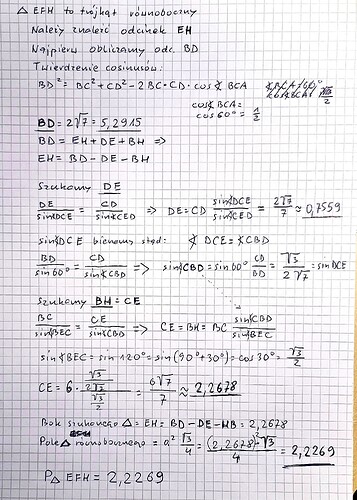 △ EFH to trójkąt równoboczny
Należy znaleźć odcinek EH
Najpierw obliczamy odc. BD
Twierdzenie cosinusów:
BD² = BC² + CD² - 2BC·CD·cos∢BCA
cos∢BCA =
cos60° = 1/2
BD = 2√7 = 5,2915
BD = EH + DE + BH =>
EH = BD - DE - BH
Szukamy DE
DE/sin∢DCE = CD/sin∢CED => DE = CD sin∢DCE/sin∢CED = 2√7/7 ≈ 0,7559
sin∢DCE bierzemy stąd: ∢DCE = ∢CBD
BD/sin60° = CD/sin∢CBD => sin∢CBD = sin60° CD/BD = √3/2√7 = sinDCE
Szukamy BH = CE
BC/sin∢BEC = CE/sin∢CBD => CE = BH = BC sin∢CBD/sin∢BEC
sin∢BEC = sin120° = sin(90°+30°) = cos30° = √3/2
CE = 6· √3/2√7 / √3/2 = 6√7/7 ≈ 2,2678
Bok szukanego △ = EH = BD - DE - HB = 2,2678
Pole△ równobocznego = a²√3/4 = (2,2678)²·√3/4 = 2,2269
P△ EFH = 2,2269